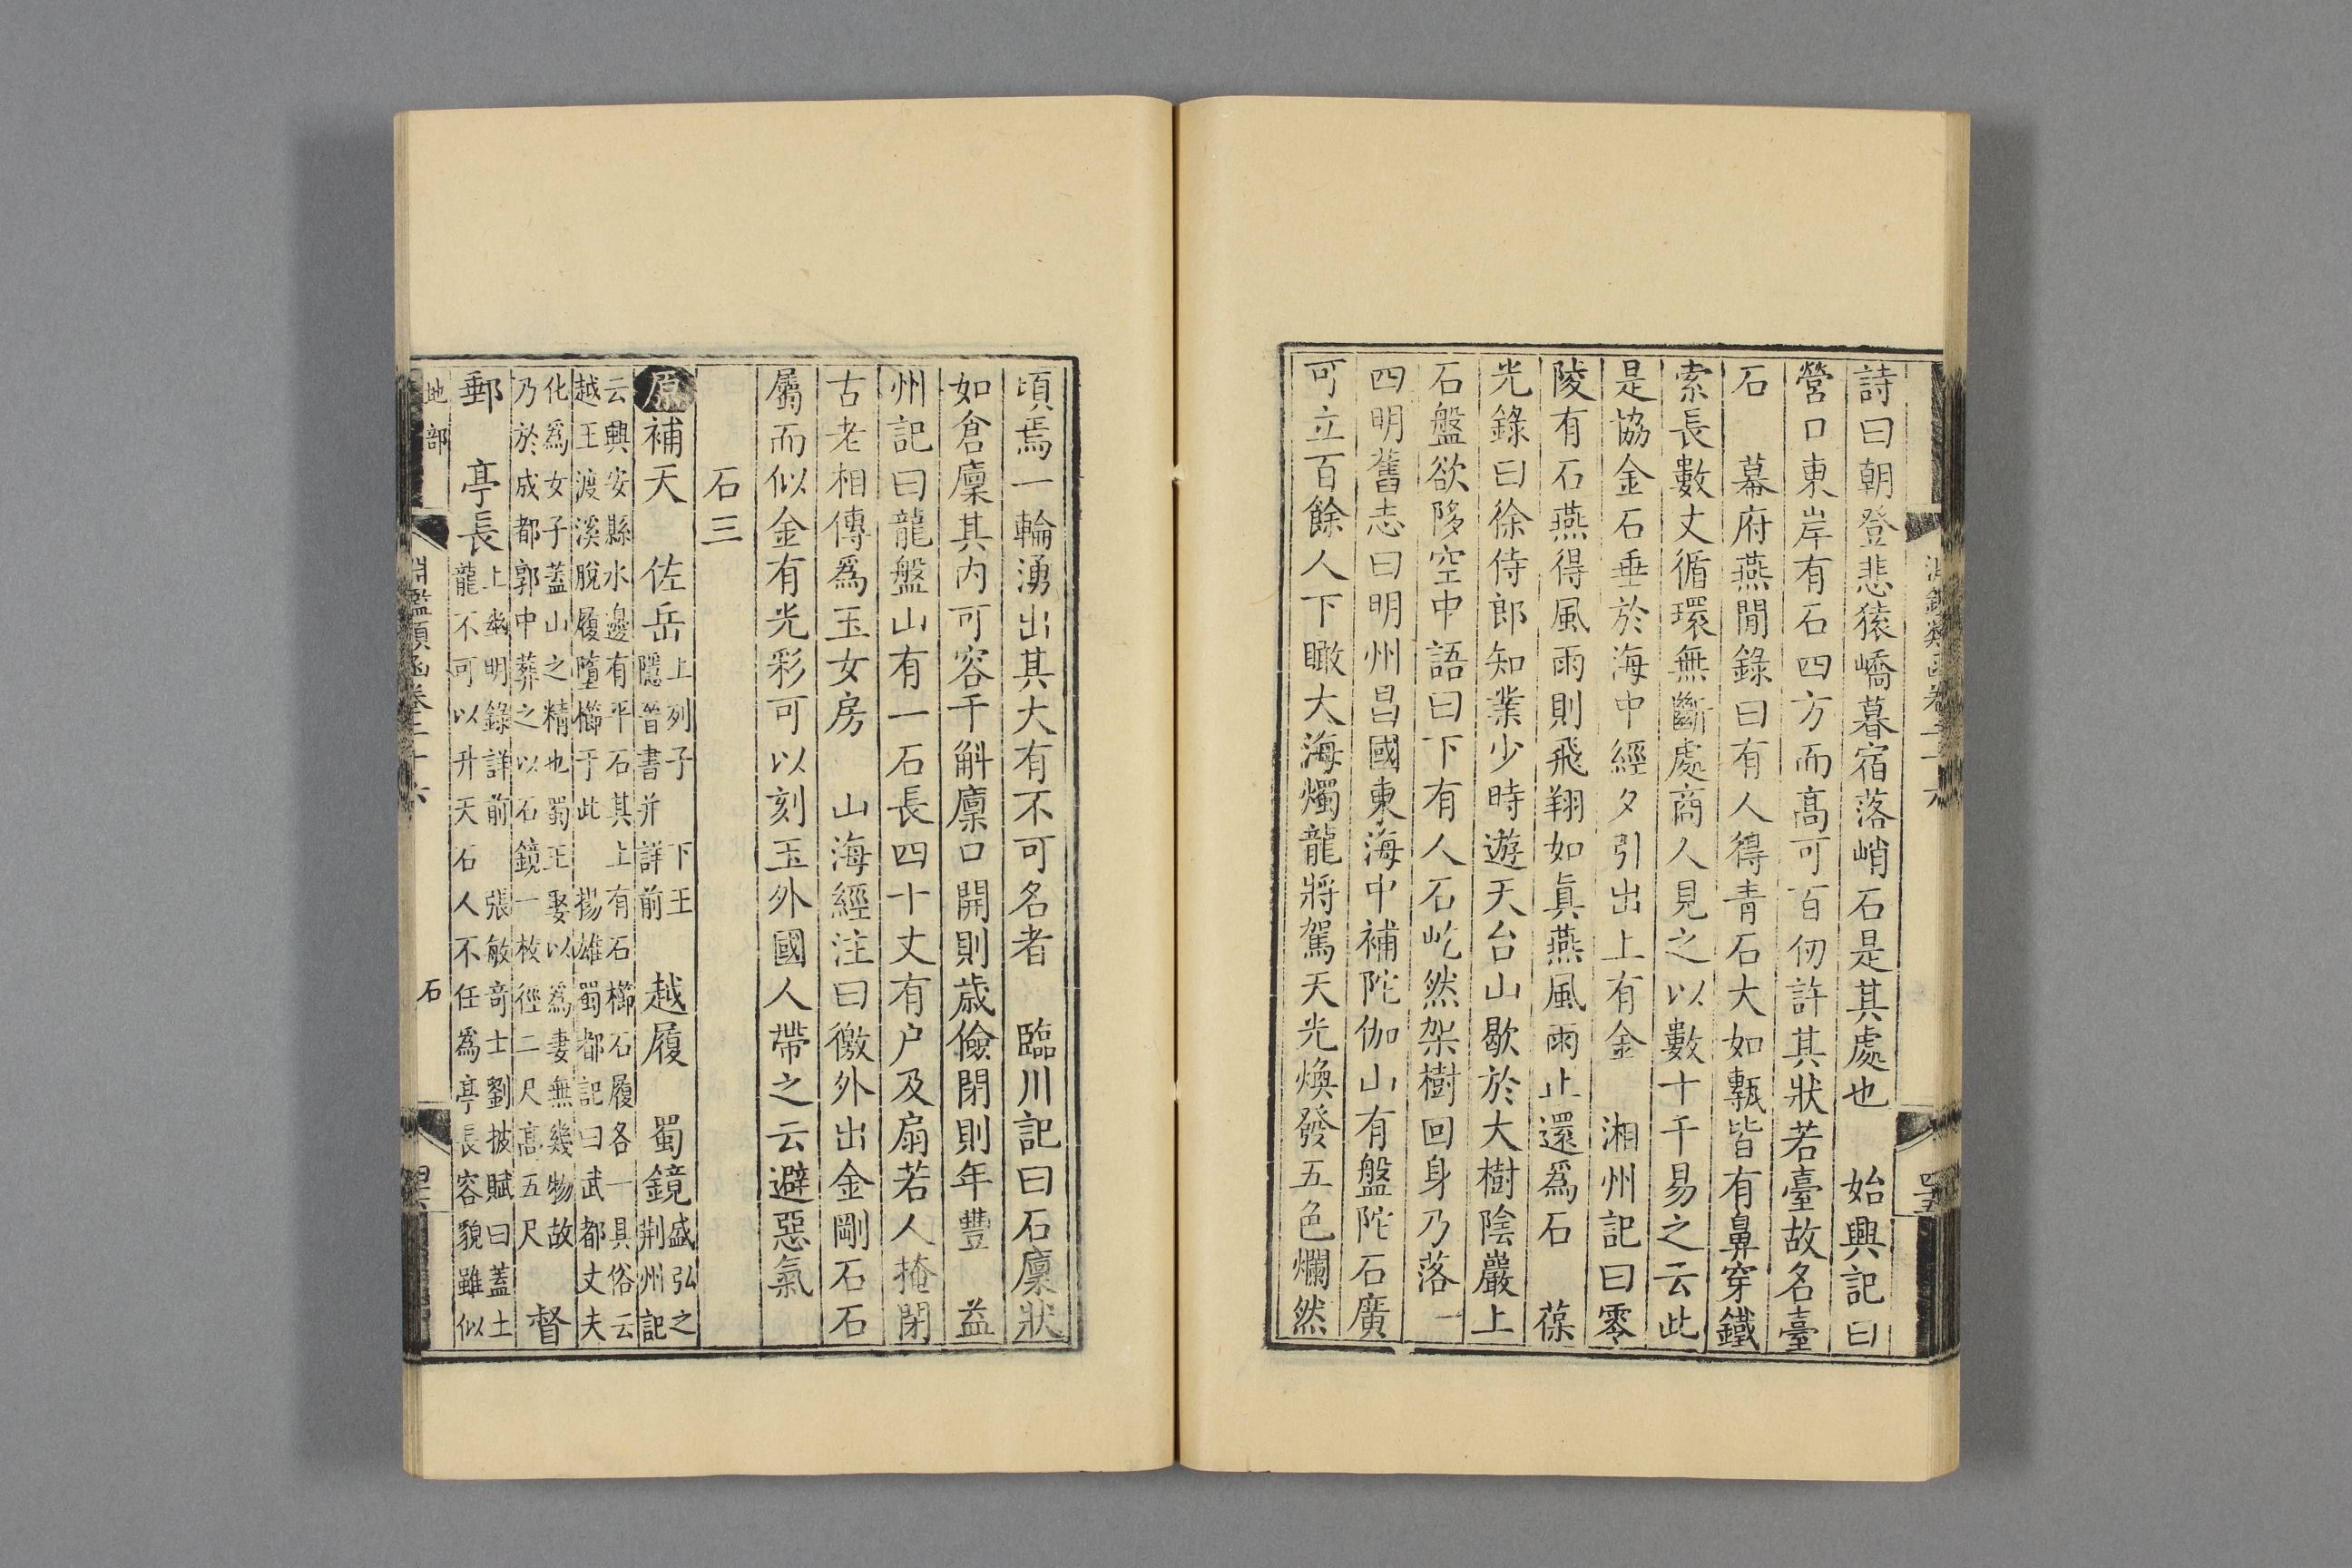 詩曰朝登悲猿嶠暮宿落峭石是其處也　始興記曰
營口東岸有石四方而高可百仞許其狀若臺故名臺
石　幕府燕閒錄曰有人得青石大如甎皆有鼻穿鐵
索長數丈循環無斷處商人見之以數十千易之云此
是協金石垂於海中經夕引出上有金　湘州記曰零
陵有石燕得風雨則飛翔如眞燕風雨止還爲石　葆
光錄曰徐侍郎知業少時遊天台山歇於大樹陰巖上
石盤欲陊空中語曰下有人石屹然架樹回身乃落一
四明舊志曰明州昌國東海中補陀伽山有盤陀石廣
可立百餘人下瞰大海燭龍將駕天光煥發五色爛然
頃焉一輪湧出其大有不可名者　臨川記曰石廩狀
如倉廩其內可容千斛廩口開則歲儉閉則年豐　益
州記曰龍盤山有一石長四十丈有户及扇若人掩閉
古老相傳爲玉女房　山海經注曰徼外出金剛石石
屬而似金有光彩可以刻玉外國人帶之云避惡氣
石三
原補天　佐岳上列子　下王隱晉書并詳前　越履　蜀鏡盛弘之荆州記
云興安縣水邊有平石其上有石櫛石履各一具俗云
越王渡溪脫履墮櫛于此　揚雄蜀都記曰武都丈夫
化爲女子蓋山之精也蜀王娶以爲妻無幾物故
乃於成都郭中葬之以石鏡一枚徑二尺高五尺　督
郵　亭長上幽明錄詳前　張敏竒士劉披賦曰蓋土龍不可以升天石人不任爲亭長容貌雖似
地部　淵鑑類函卷二十六　石